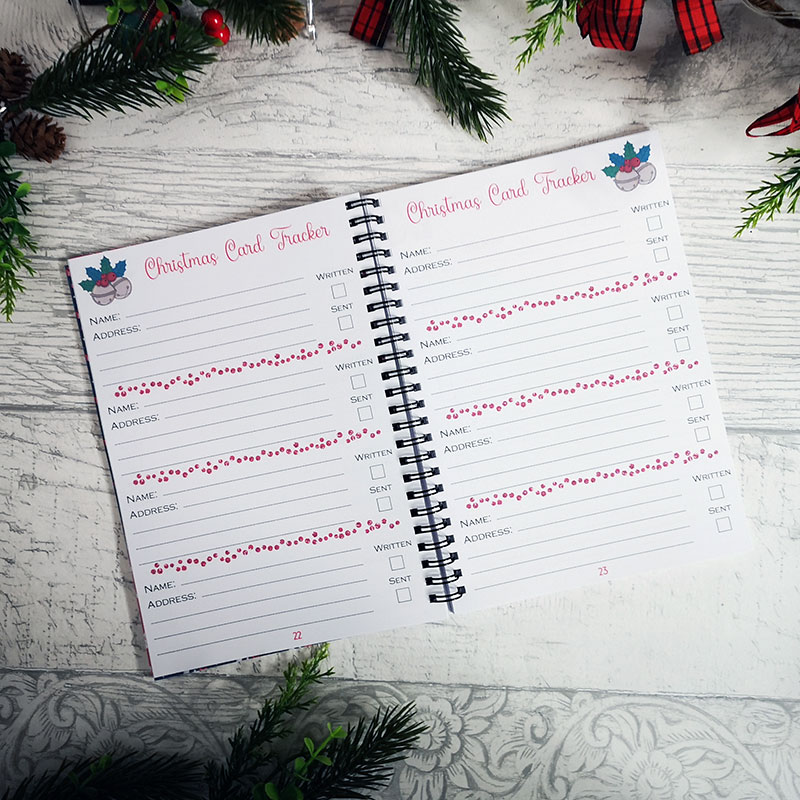 Christmas Card Tracker
WRITTEN
NAME:
ADDRESS:
SENT
WRITTEN
NAME:
ADDRESS:
SENT
WRITTEN
NAME:
ADDRESS:
SENT
WRITTEN
NAME:
ADDRESS:
SENT
22
Christmas Card Tracker
WRITTEN
NAME:
ADDRESS:
SENT
WRITTEN
NAME:
ADDRESS:
SENT
WRITTEN
NAME:
ADDRESS:
SENT
WRITTEN
NAME:
ADDRESS:
SENT
23